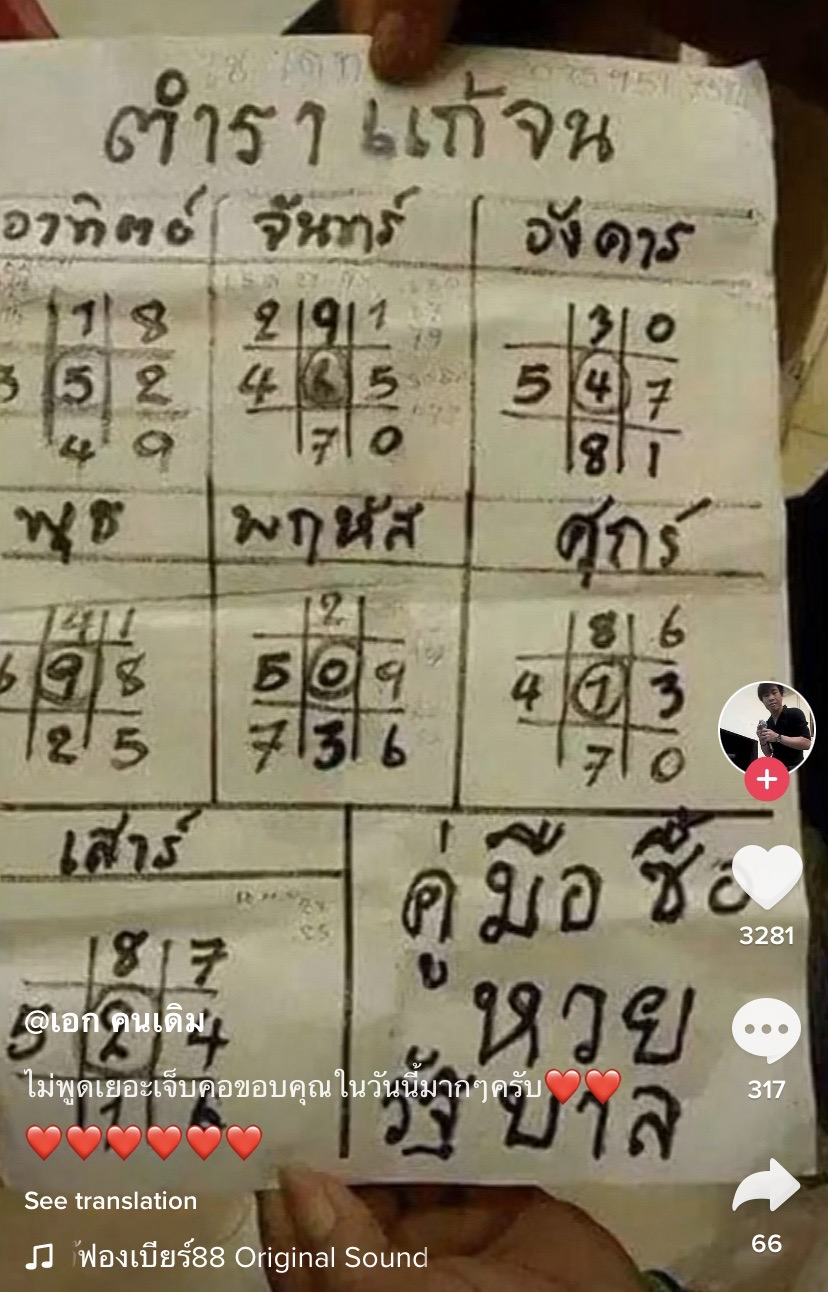 ตำราแก้จน
อาทิตย์ จันทร์ อังคาร
1 8 2 9 1 3 0
3 5 2 4 6 5 5 4 7
4 9 7 0 8 1
พุธ พฤหัส ศุกร์
4 1 2 8 6
6 9 8 5 0 9 4 1 3
2 5 7 3 6 7 0
เสาร์
8 7
5 2 4
1 6
คู่มือซื้อ
หวย
รัฐบาล
3281
317
66
@เอก คนเดิม
ไม่พูดเยอะเจ็บคอขอบคุณในวันนี้มากๆครับ❤️❤️
❤️❤️❤️❤️❤️❤️
See translation
ฟองเบียร์88 Original Sound